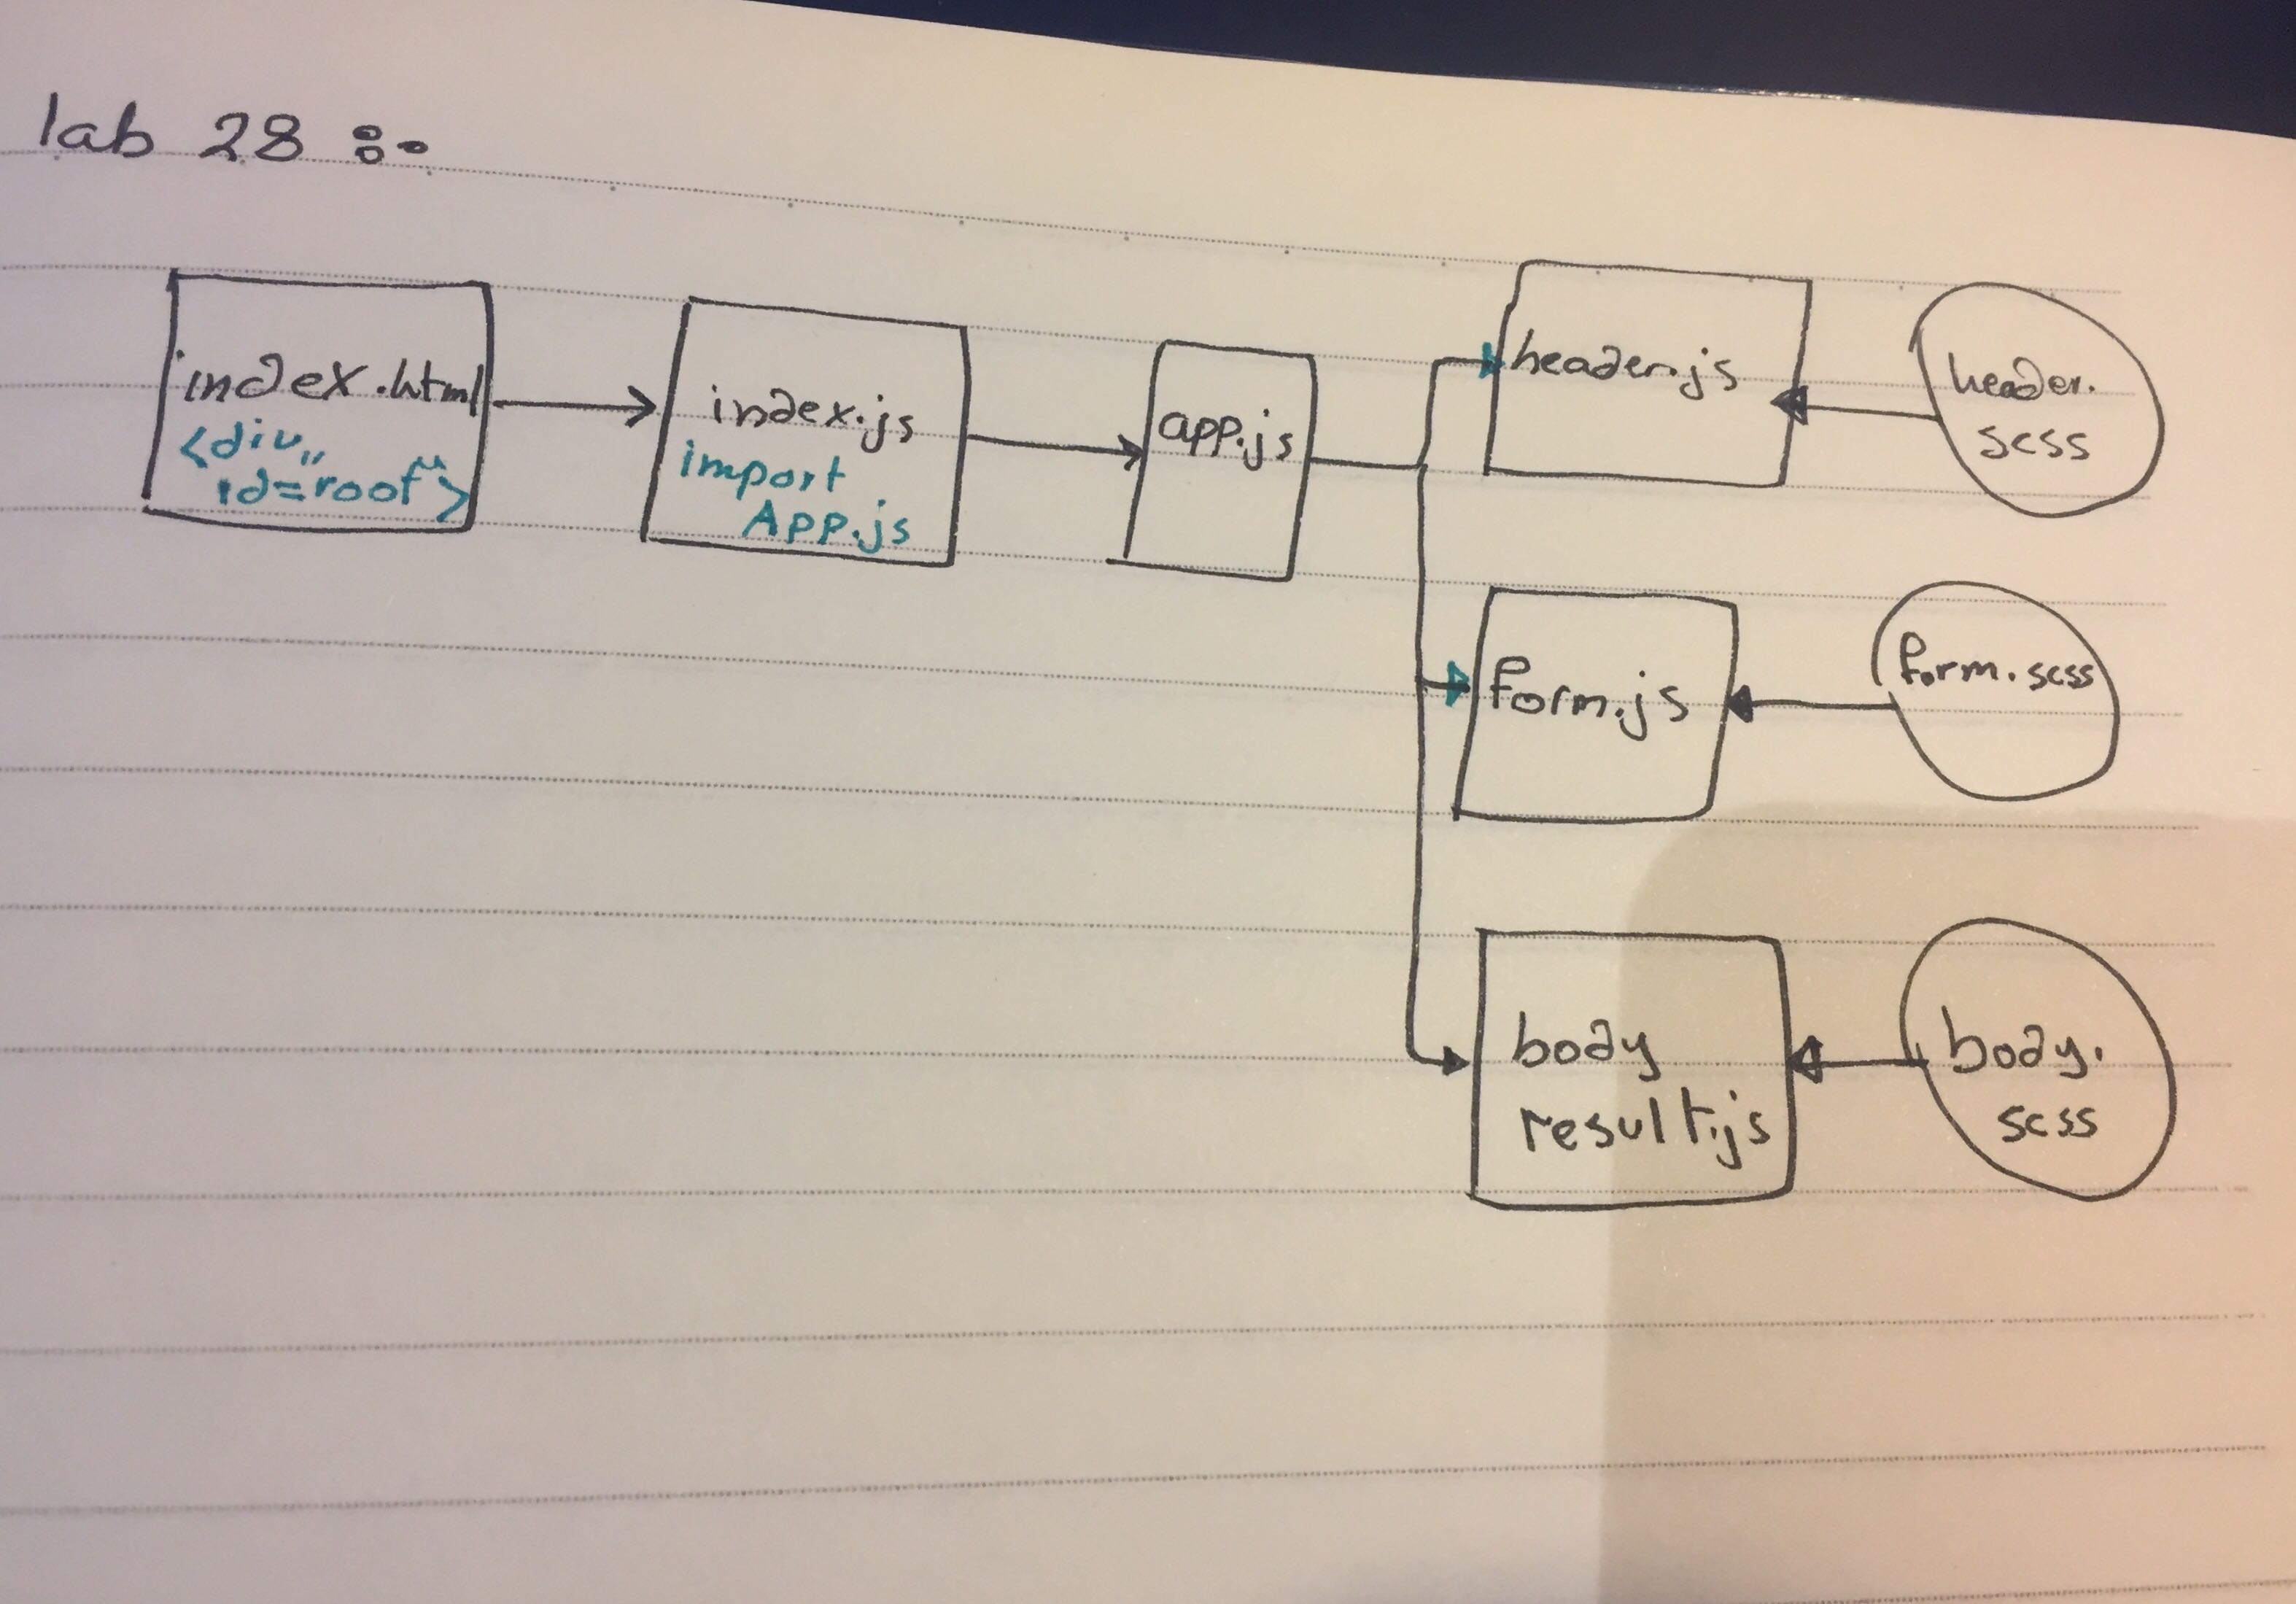 lab 28 :-
index.html
<div
id="root">
index.js
import
App.js
app.js
header.js
header.
scss
form.js
form.scss
body
result.js
body.
scss